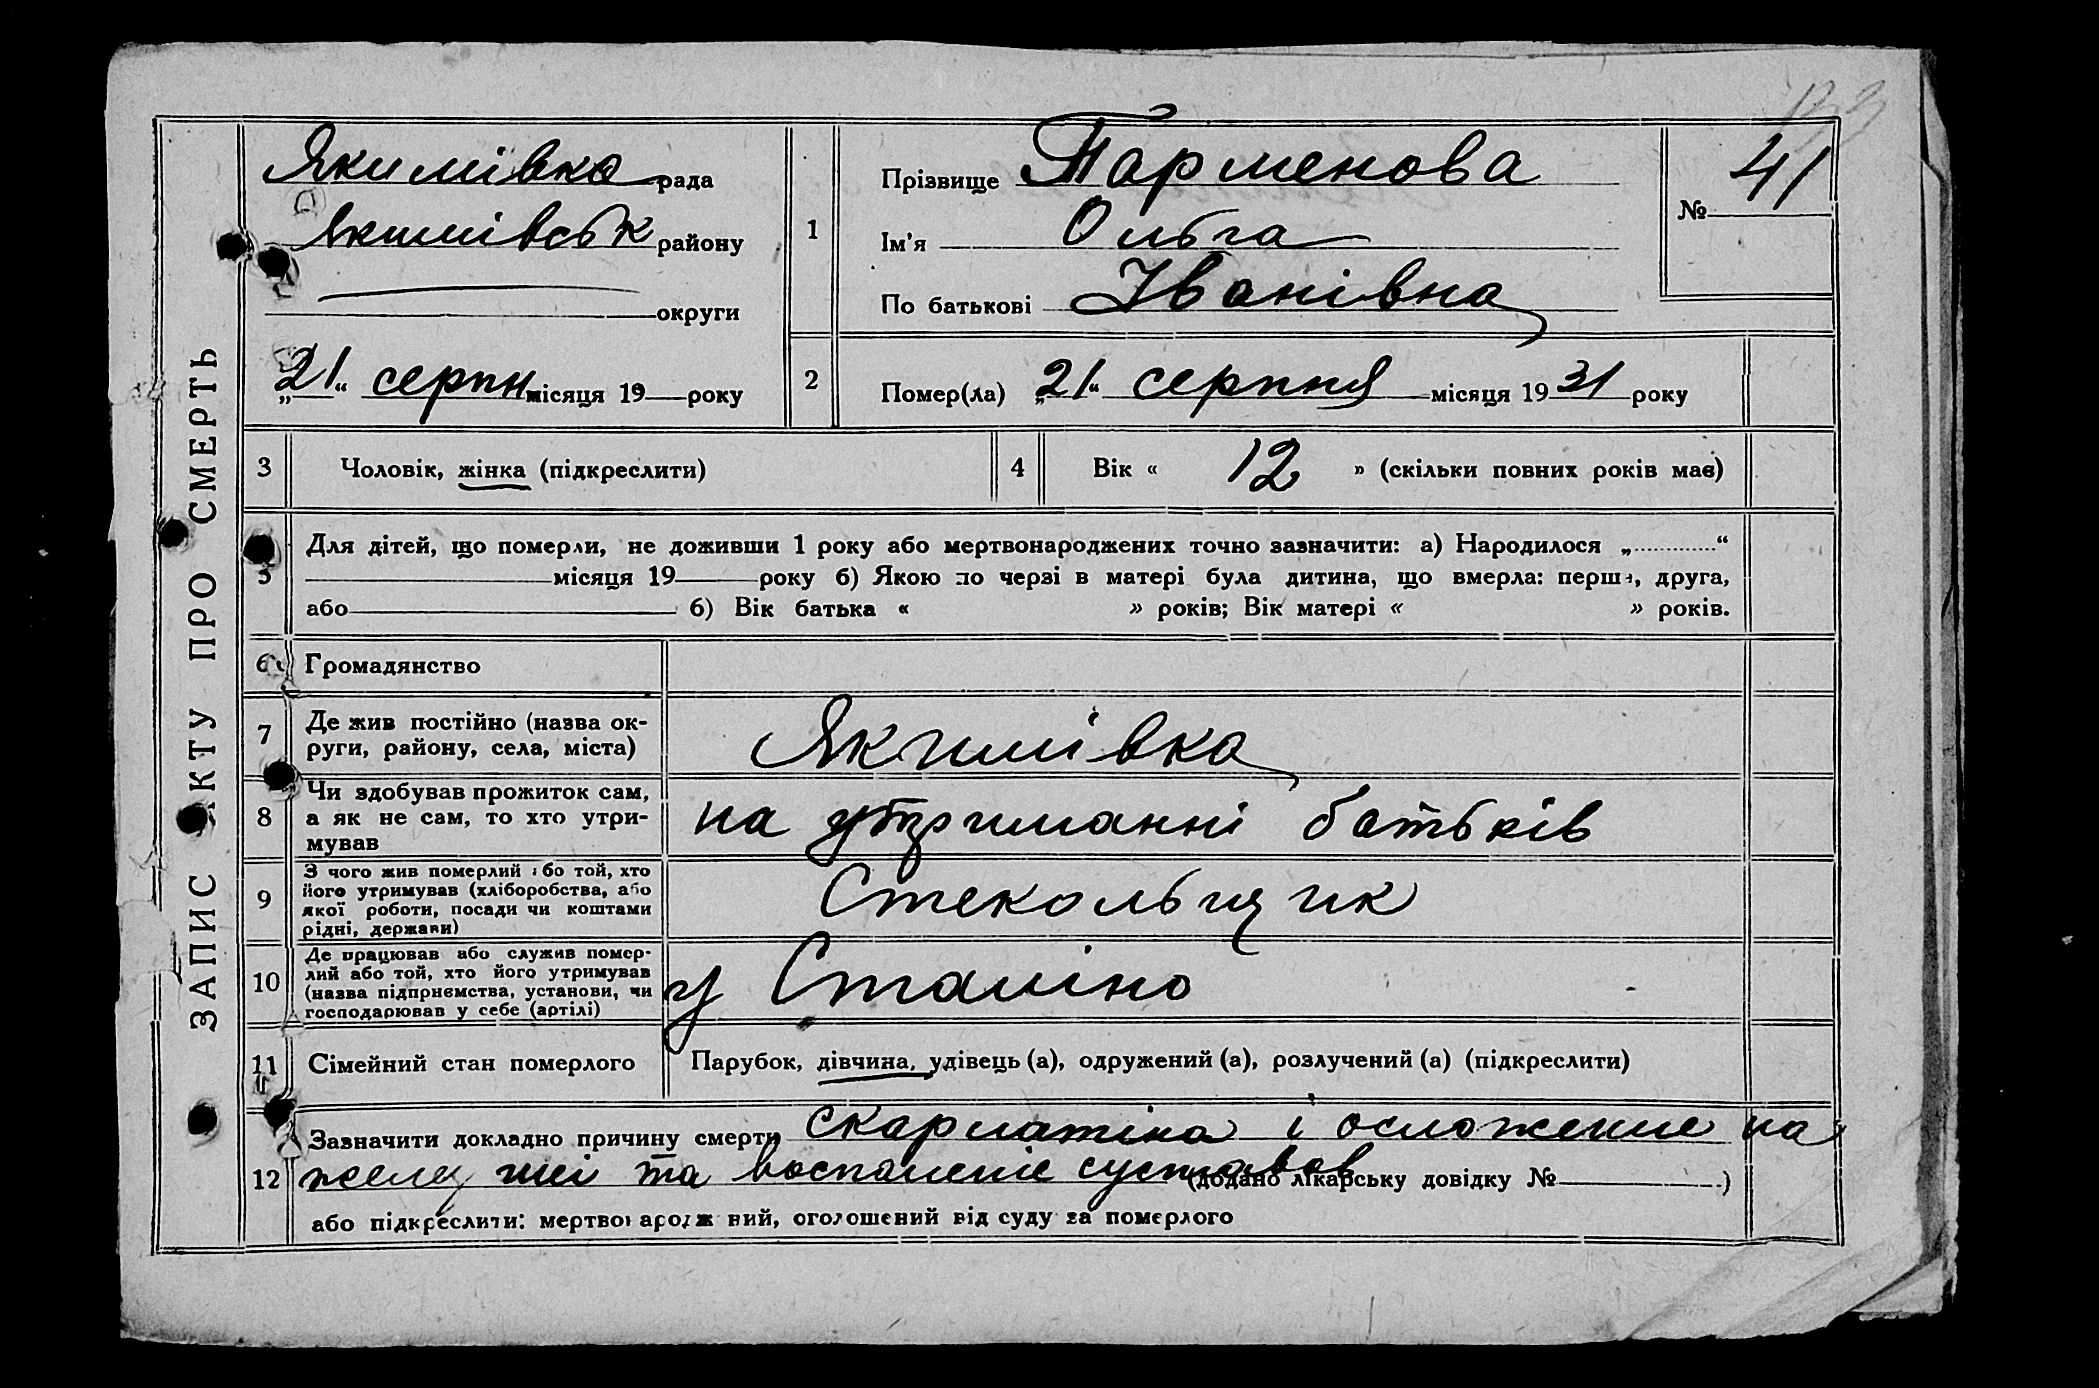 133
ЗАПИС АКТУ ПРО СМЕРТЬ
Якимівка рада
Якимівськ району
округи
„21“ серпн місяця 19 року
1
Прізвище Парменова
Ім'я Ольга
По батькові Іванівна
№ 41
2
Помер(ла) „21“ серпня місяця 1931 року
3 Чоловік, жінка (підкреслити)
4 Вік « 12 » (скільки повних років має)
5
Для дітей, що померли, не доживши 1 року або мертвонароджених точно зазначити: а) Народилося „............“
місяця 19 року б) Якою по черзі в матері була дитина, що вмерла: перша, друга,
або б) Вік батька « » років; Вік матері « » років.
6 Громадянство
7 Де жив постійно (назва ок-
руги, району, села, міста)
Якимівка
8 Чи здобував прожиток сам,
а як не сам, то хто утри-
мував
на утриманні батьків
9 З чого жив померлий або той, хто
його утримував (хліборобства, або
якої роботи, посади чи коштами
рідні, держави)
Стекольщик
10 Де працював або служив помер-
лий або той, хто його утримував
(назва підприємства, установи, чи
господарював у себе (артілі)
у Сталіно
11 Сімейний стан померлого
Парубок, дівчина, удівець (а), одружений (а), розлучений (а) (підкреслити)
12
Зазначити докладно причину смерти скарлатіна і осложение на
желез шиі та воспаленіе суставов (додано лікарську довідку № )
або підкреслити: мертвонароджений, оголошений від суду за померлого